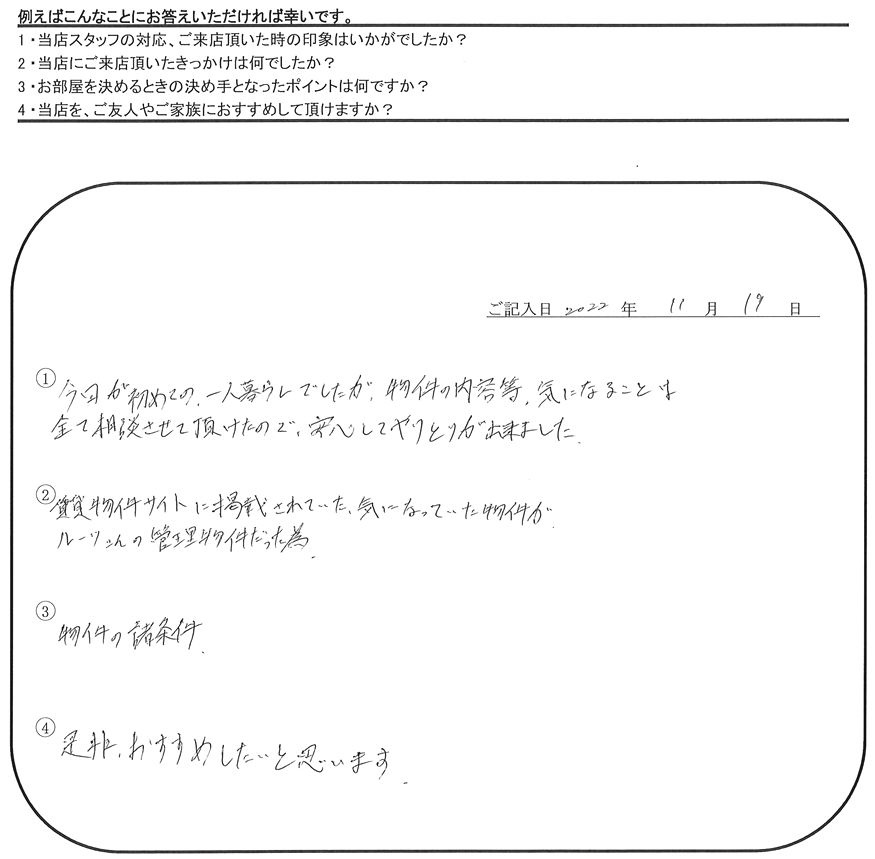 例えばこんなことにお答えいただければ幸いです。
1・当店スタッフの対応、ご来店頂いた時の印象はいかがでしたか？
2・当店にご来店頂いたきっかけは何でしたか？
3・お部屋を決めるときの決め手となったポイントは何ですか？
4・当店を、ご友人やご家族におすすめして頂けますか？
ご記入日 2022 年 11 月 19 日
① 今回が初めての、一人暮らしでしたが、物件の内容等、気になることは
全て相談させて頂けたので、安心してやりとりが出来ました。
② 賃貸物件サイトに掲載されていた、気になっていた物件が
ルーツさんの管理物件だった為。
③ 物件の諸条件。
④ 是非、おすすめしたいと思います。